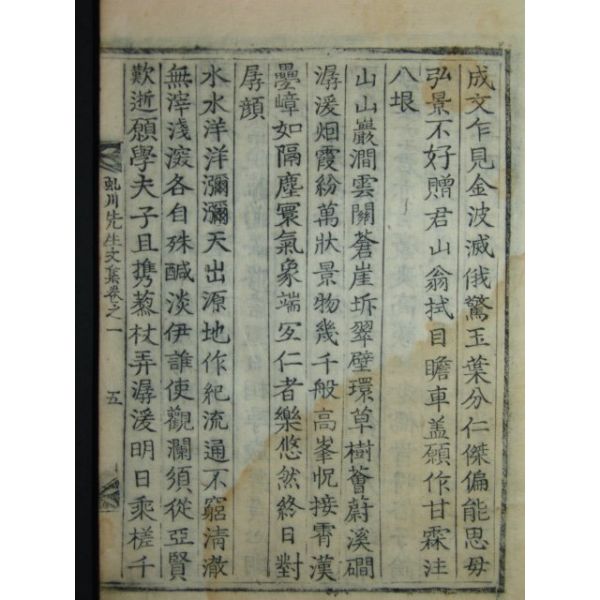 成文乍見金波滅俄驚玉葉分仁傑偏能思毋
弘景不好贈君山翁拭目瞻車盖願作甘霖注
八垠
山山巖澗雲關蒼崖坼翠壁環草樹薈蔚溪磵
潺湲烟霞紛萬狀景物幾千般高峯怳接霄漢
疊嶂如隔塵寰氣象端宜仁者樂悠然終日對
孱顔
水水洋洋瀰瀰天出源地作紀流通不窮清澈
無滓淺深各自殊醎淡伊誰使觀瀾須從亞賢
歎逝願學夫子且携藜杖弄潺湲明日乘槎千
虬川先生文集卷之一
五